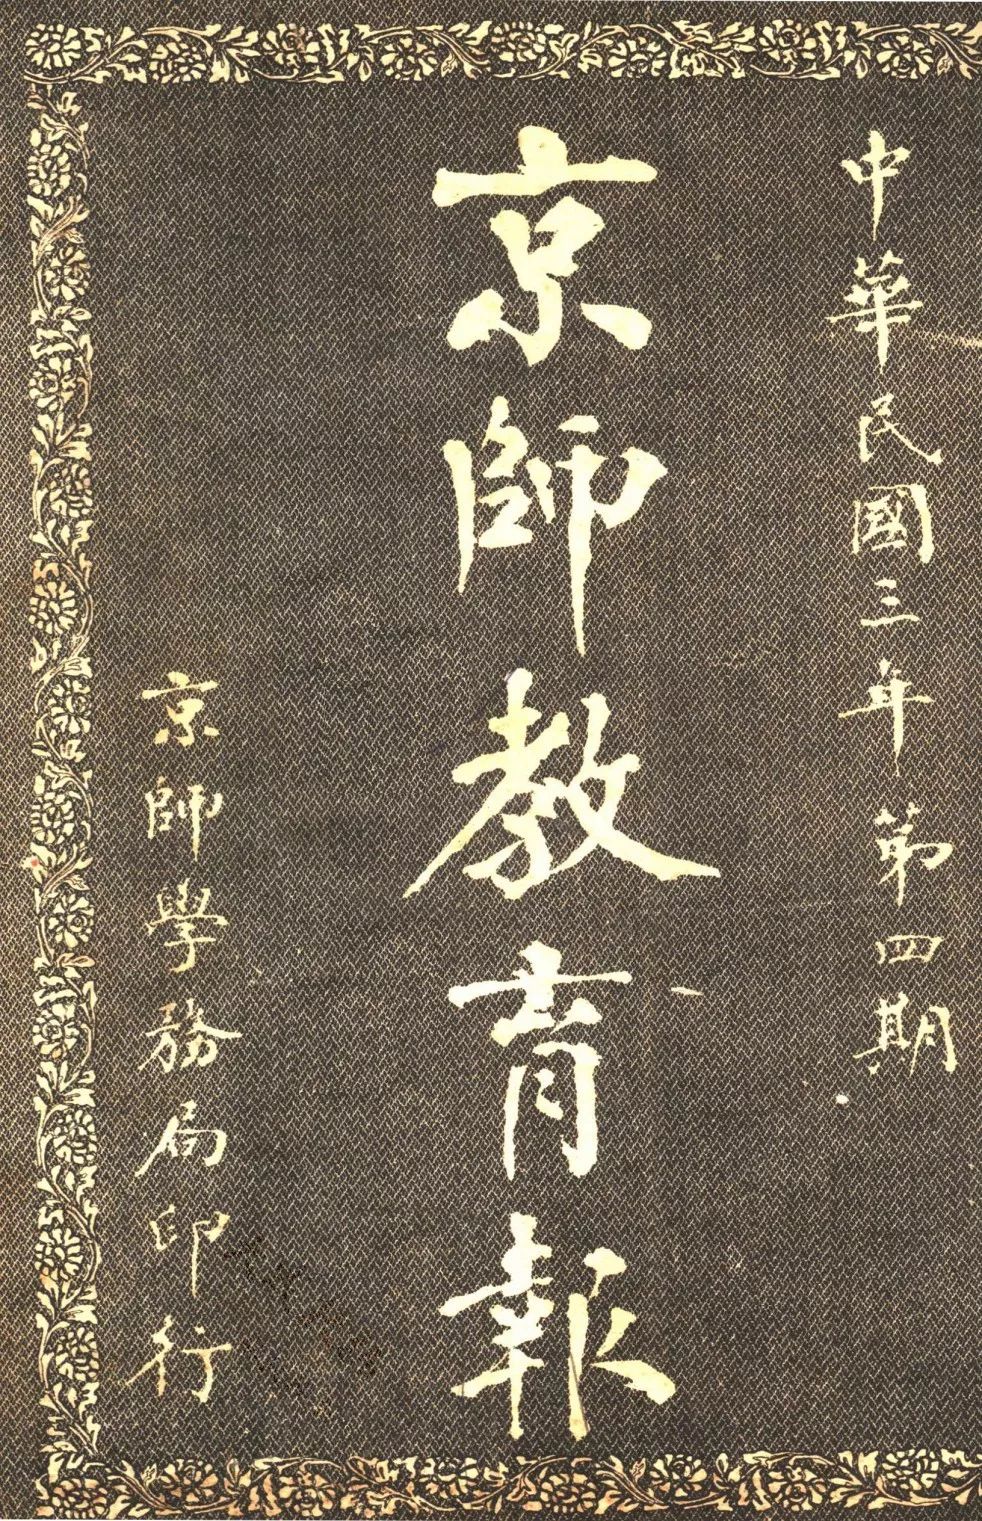 中華民國三年第四期
京師教育報
京師學務局印行